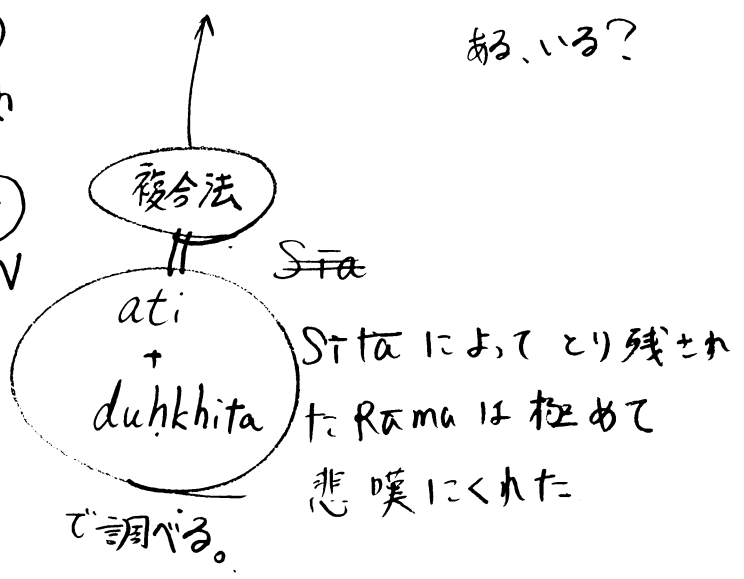 ある、いる?
複合法
Sīa
ati
+
duḥkhita
で調べる。
Sītā によって とり残され
た Rāma は 極めて
悲嘆にくれた